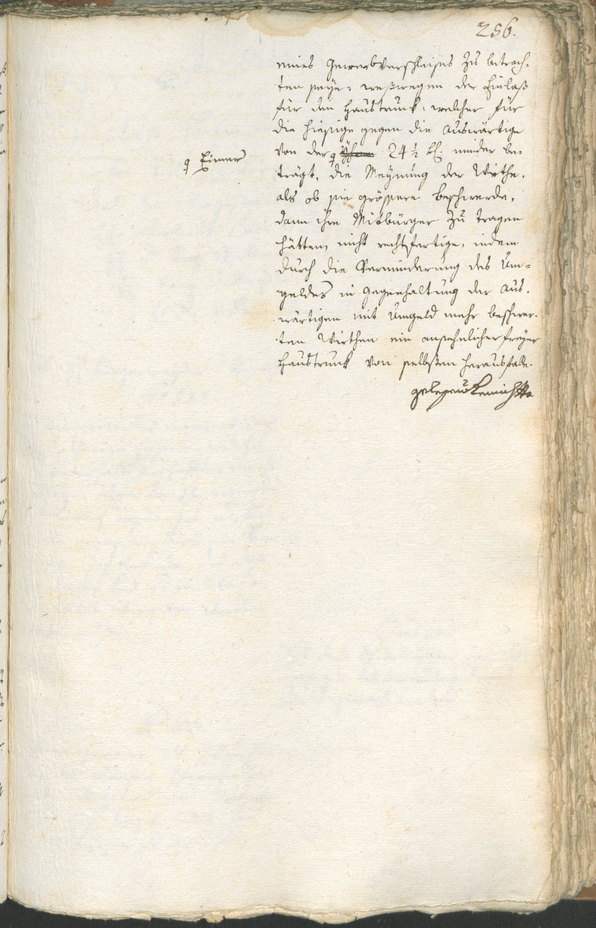 256.
eines Gewerbverschleises zu betrach,
ten seye: weßwegen der Einlaß
für den Haustrunk, welcher für
die hiesige gegen die Auswärtige
von der 24½ xr: minder be,
q Eimer
trägt, die Meynung der Wirthe,
als ob sie grössere Beschwerde,
dann ihre Mitbürger zu tragen
hätten, nicht rechtfertige, indem
durch die Verminderung des Um-
geldes in Gegenhaltung der Aus,
wärtigen mit Umgeld mehr beschwer,
ten Wirthen ein ansehnlicher freyer
Haustrunk von selbsten herausfalle.